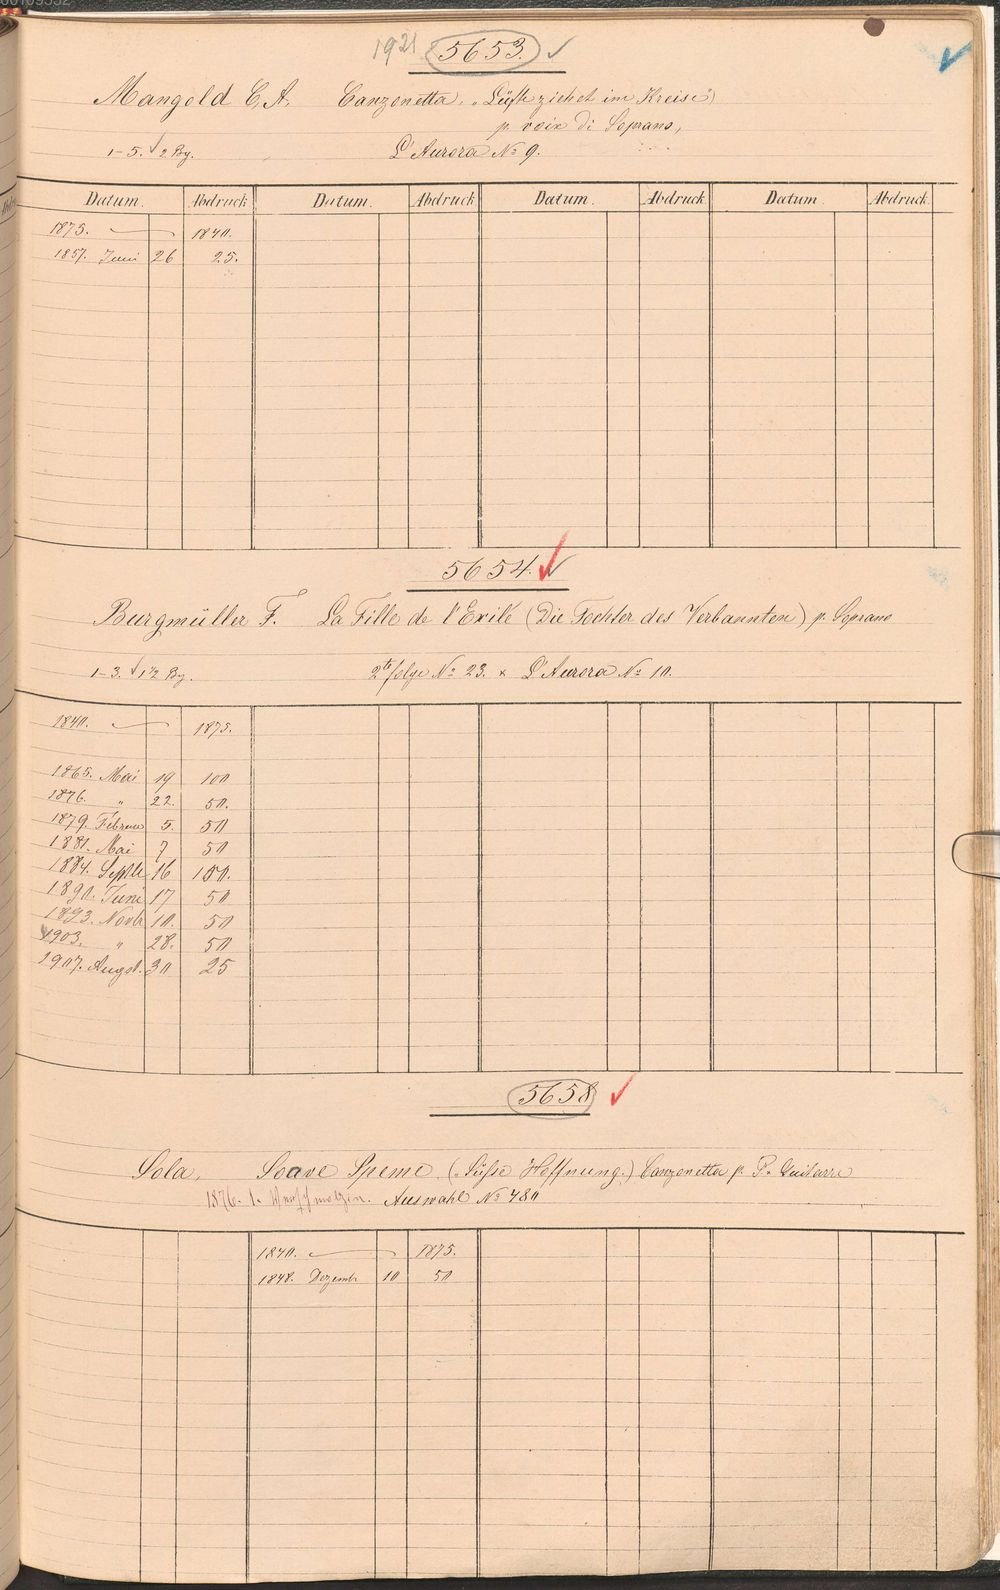 1921 5653. ✓
Mangold C. A. Canzonetta. "Lüfte ziehet im Kreise")
p. voix di Soprano,
1–5. ✓ 2 Bg. L'Aurora No 9.
Datum. Abdruck Datum. Abdruck Datum. Abdruck Datum Abdruck.
1875. — 1840.
1857. Juni 26 25.
5654. ✓
Burgmüller F. La Fille de l'Exilé (Die Tochter des Verbannten) p. Soprano
1–3. ✓ 1 1/2 Bg. 2te folge No 23. × L'Aurora No 10.
1840. — 1875.
1865. Mai 19 100
1876. " 22. 50.
1879. Februar 5. 50
1881. Mai 7 50
1884. Septbr 16 100.
1890. Juni 17 50
1893. Novbr 10. 50
1903. " 28. 50
1907. Augst. 30 25
5658 ✓
Sola. Soave Speme. (Süsse Hoffnung.) Canzonetta p. P. Guitarre
1876. Auswahl No 480
1840. — 1875.
1848. Dezembr 10 50